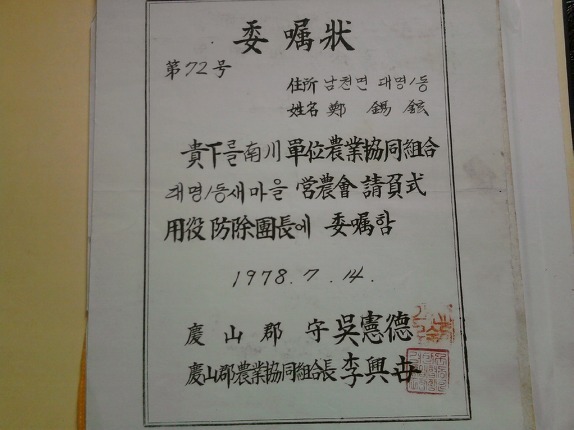 委囑狀
第72号
住所 남천면 대명1동
姓名 鄭 錫 鉉
貴下를 南川 單位農業協同組合
대명1동새마을 営農會 請負式
用役 防除團長에 委囑함
1978. 7. 14.
慶山郡守 吳憲德
慶山郡農業協同組合長 李興吉